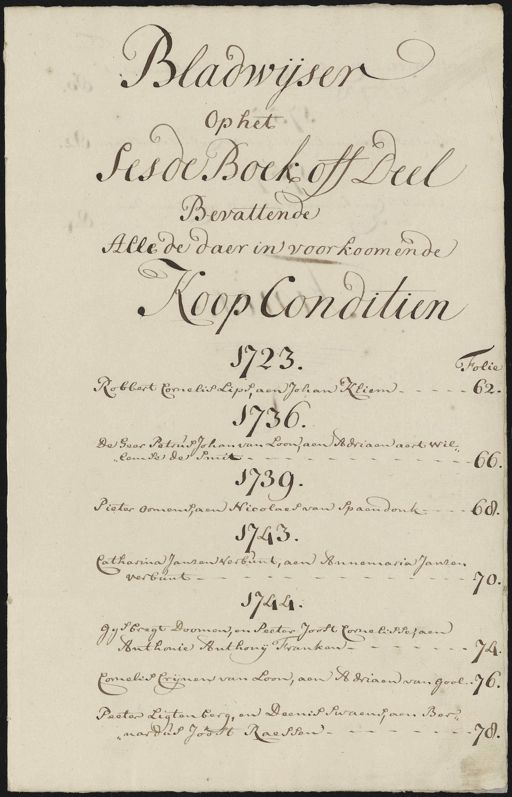 Bladwijser
Op het
Sesde Boek off Deel
Bevattende
Alle de daer in voorkoomende
Koop Conditien
1723.
Folie
Robbert Cornelis Lips, aen Johan Kliem - - - - - 62.
1736.
De Heer Petrus Johan van Loon, aen Adriaen aert Wil„
„lemse de Smit - - - - - 66.
1739.
Pieter Oomens, aen Nicolaes van Spaendonk - - - - 68.
1743.
Catharina Jansen Verbunt, aen Annemaria Jansen
Verbunt - - - - - 70.
1744.
Gijsbregt Doomen, en Peeter Joost Cornelisse, aen
Anthonie Anthonij Franken - - - - - 74.
Cornelis Crijnen van Loon, aen Adriaen van Gool - 76.
Peeter Ligtenberg, en Deenis Swaens, aen Ber„
„nardus Joost Raessen - - - - - 78.